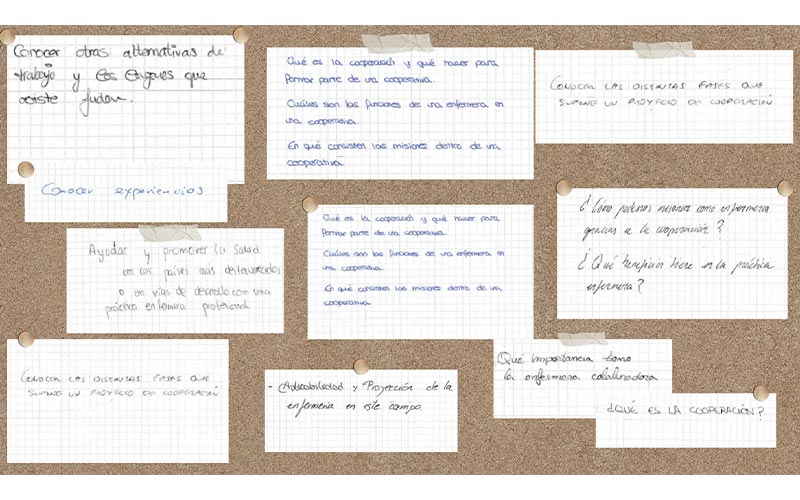 Conocer otras alternativas de
trabajo y los que
existe
Qué es la cooperación y qué hacer para
formar parte de una cooperativa.
Cuáles son las funciones de una enfermera en
una cooperativa.
En qué consisten las misiones dentro de una
cooperativa
CONOCER LAS DISTINTAS FASES QUE
SUPONE UN PROYECTO DE COOPERACIÓN
Conocer experiencias
¿Cómo podemos mejorar como enfermeras
gracias a la cooperación?
¿Qué beneficios tiene en la práctica
enfermera?
Ayudar y promover la salud
en los países mas desfavorecidos
o en vías de desarrollo con una
práctica enfermera profesional
Qué es la cooperación y qué hacer para
formar parte de una cooperativa.
Cuáles son las funciones de una enfermera en
una cooperativa.
En qué consisten las misiones dentro de una
cooperativa
CONOCER LAS DISTINTAS FASES QUE
SUPONE UN PROYECTO DE COOPERACIÓN
- Aplicabilidad y Proyección de la
enfermería en este campo.
Qué importancia tiene
la enfermera colaboradora
¿QUÉ ES LA COOPERACIÓN?